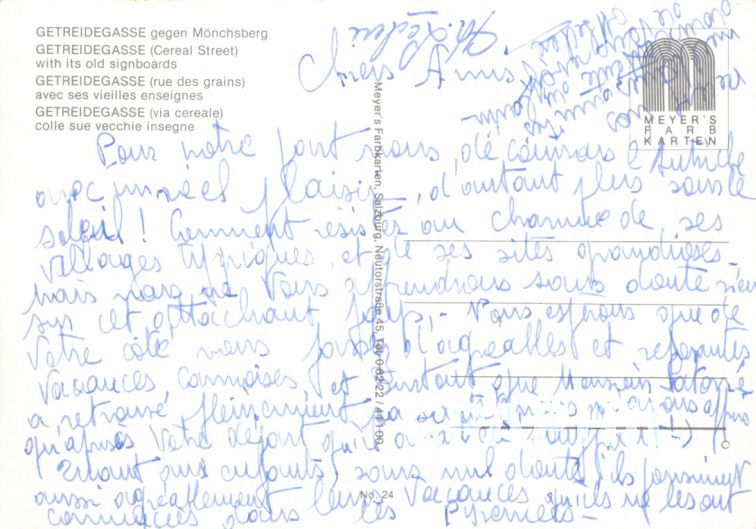 GETREIDEGASSE gegen Mönchsberg
GETREIDEGASSE (Cereal Street)
with its old signboards
GETREIDEGASSE (rue des grains)
avec ses vieilles enseignes
GETREIDEGASSE (via cereale)
colle sue vecchie insegne
Chers Amis
MEYER'S
FARB
KARTEN
Meyer's Farbkarten, Salzburg, Neutorstraße 45, Tel. 0 62 22 / 44 1 00
Pour notre part nous, découvrons l'Autriche
avec un réel plaisir, d'autant plus sous le
soleil! Comment résister au charme de ses
villages typiques et de ses sites grandioses
Mais nous ne vous apprendrons sans doute rien
sur cet attachant pays. Nous espérons que de
votre côté vous passez d'agréables et reposantes
vacances et surtout que Monsieur
a retrouvé pleinement sa avons appris
qu'après votre départ qu'il a
Quant aux enfants sans nul doute ils poursuivent
aussi agréablement leurs vacances qu'ils ne les ont
commencées dans les Pyrénées
No. 24